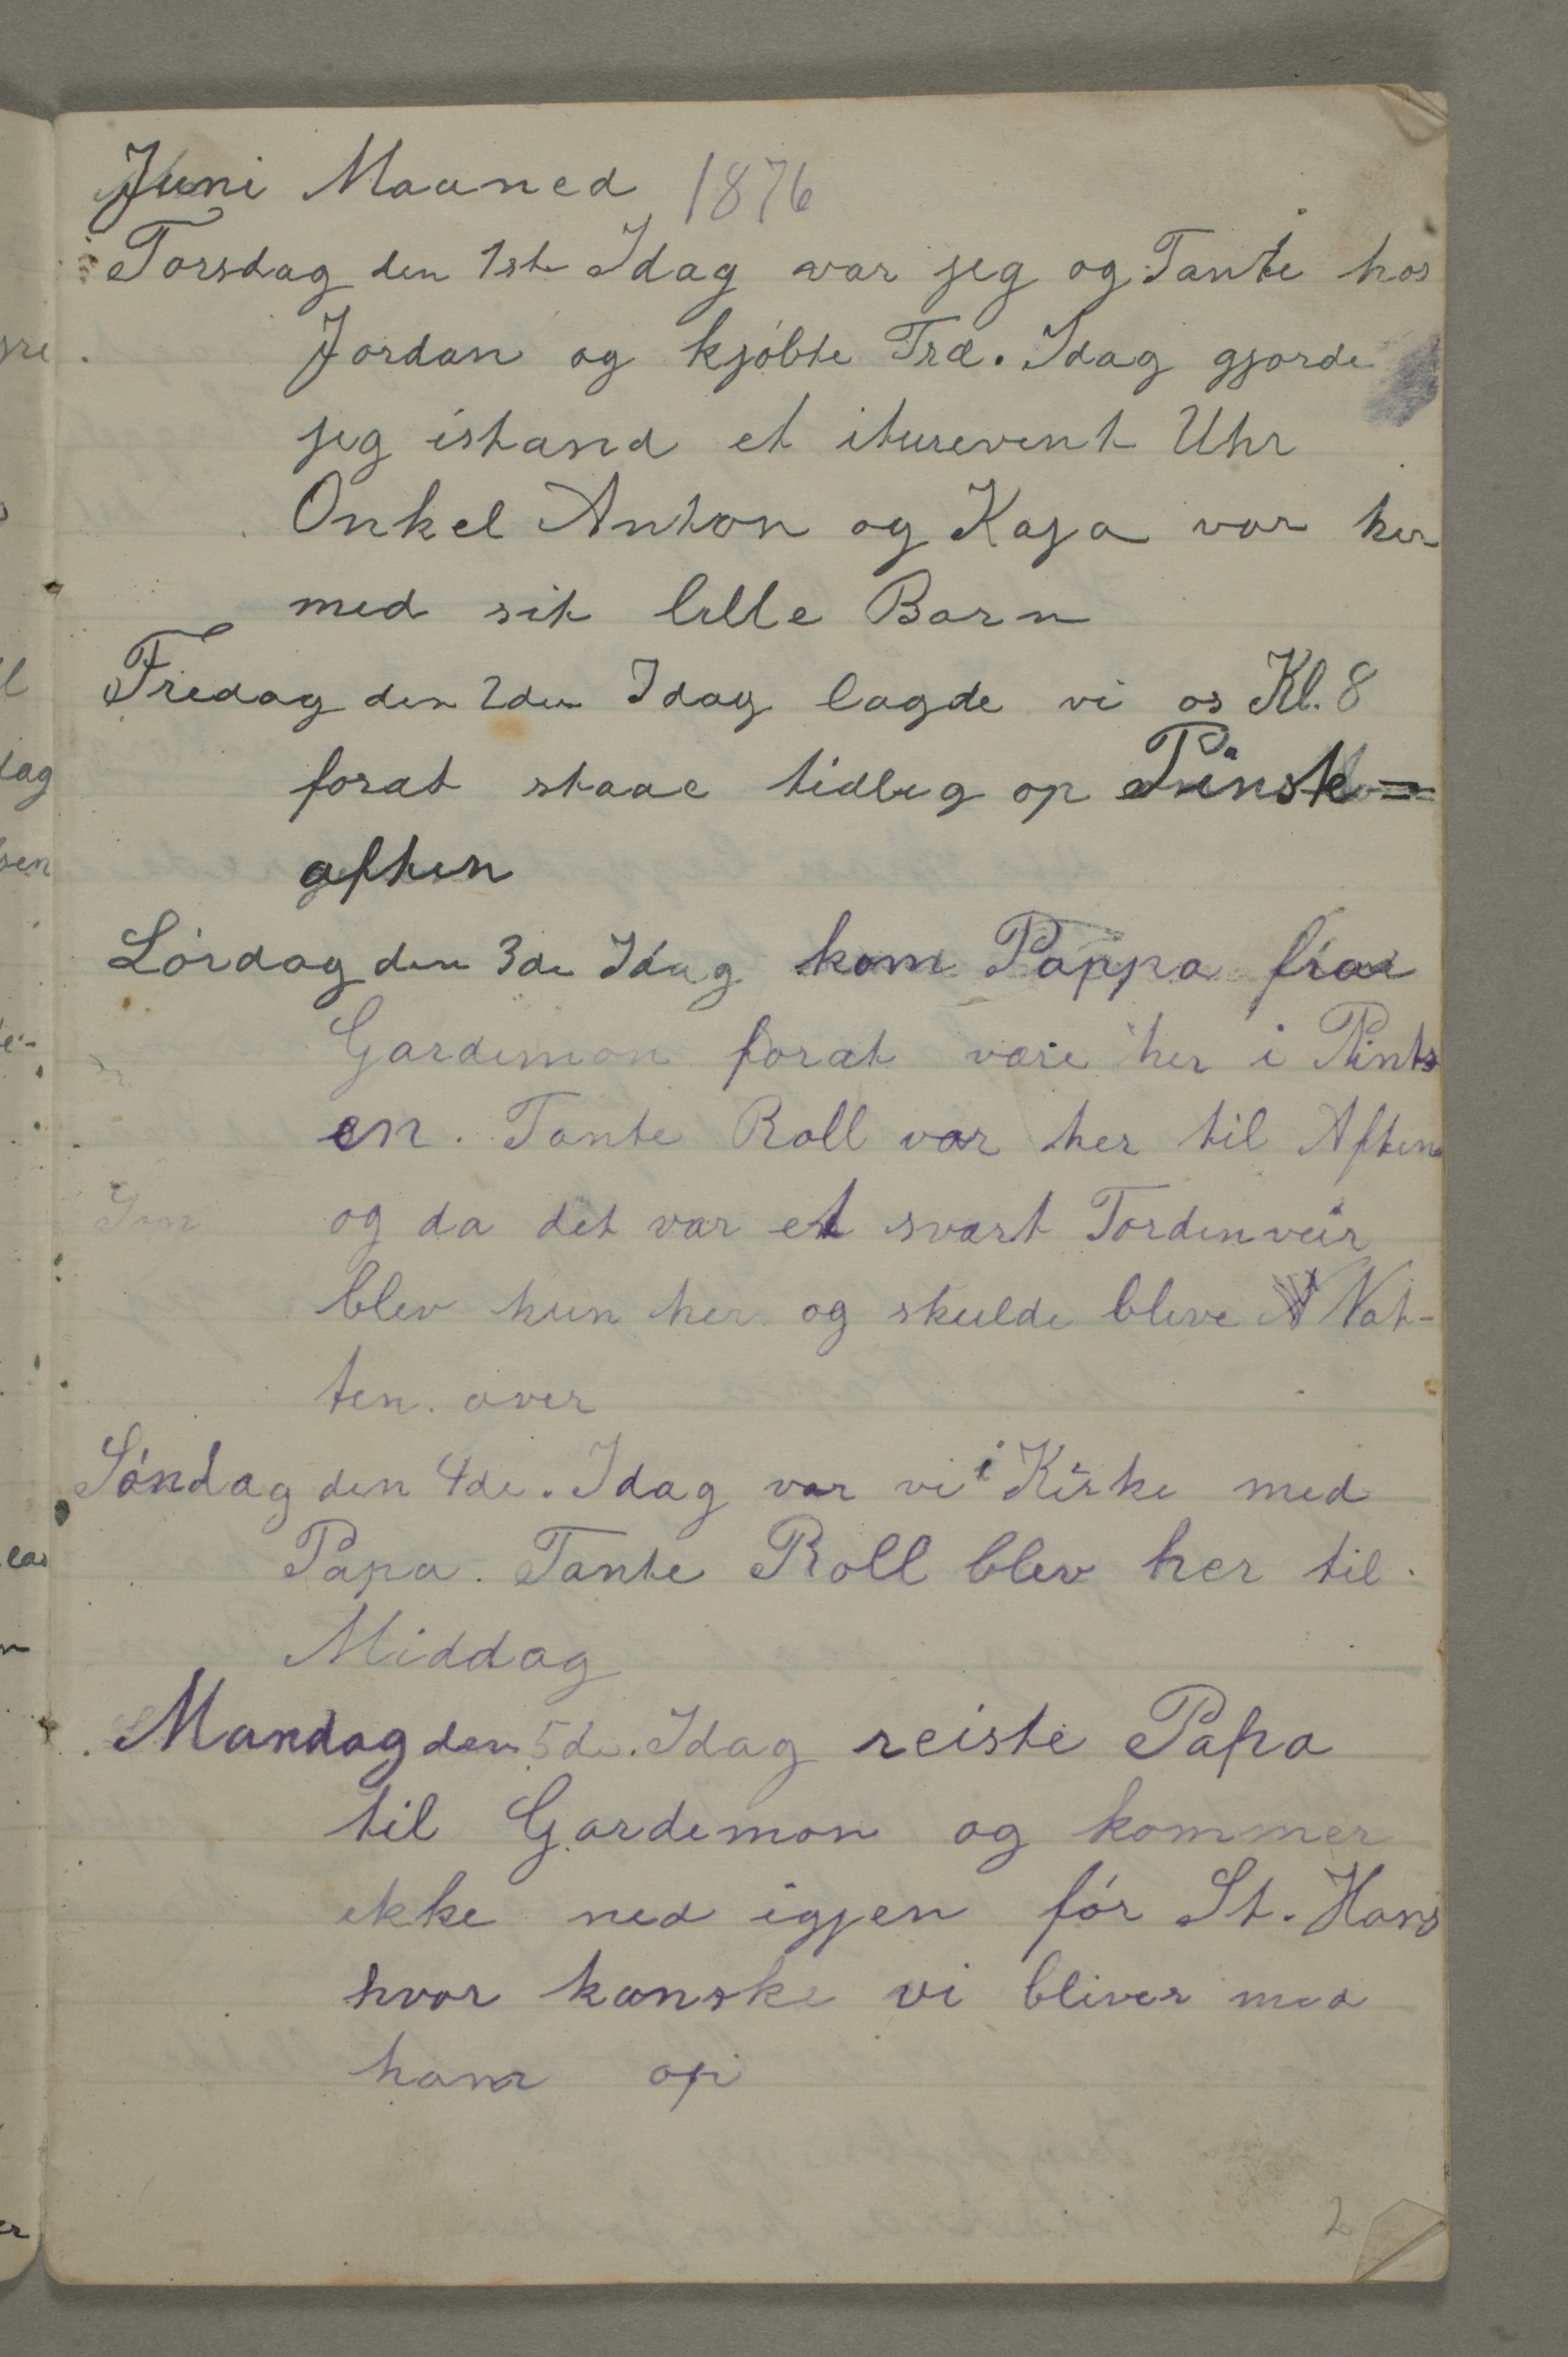 Juni Maaned 1876
Torsdag den 1ste Idag var jeg og Tante hos
Jordan og kjöbte Træ. Idag gjorde
jeg istand et iturevent Uhr
Onkel Anton og Kaja var her
med sit lille Barn
Fredag den 2den Idag lagde vi os Kl. 8
forat staae tidlig op Pinsk=
aften
Lördag den 3de Idag kom Pappa fra
Gardemon forat være her i Pints
en. Tante Roll var her til Aften
og da det var et svært Tordenveir
blev hun her og skulde blive Nat-
ten over
Söndag den 4de. Idag var vi i Kirke med
Papa. Tante Roll blev her til
Middag
Mandag den 5de. Idag reiste Papa
til Gardemon og kommer
ikke ned igjen för St. Hans
hvor kanske vi bliver med
ham op
2